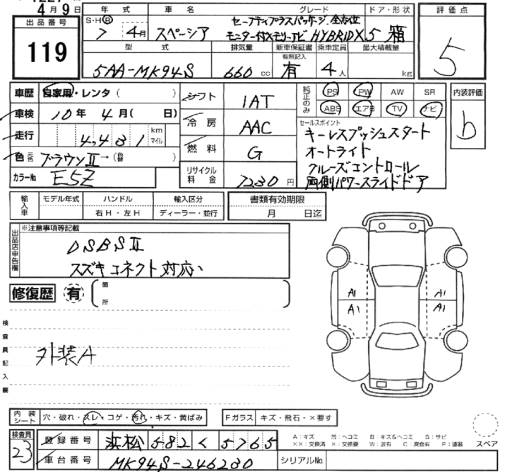 4月9日
出品番号
119
年式 車名 グレード ドア・形状
S・H・R 7年4月 スペーシア セーフティプラスパッケージ 全方位モニター付メモリーナビ HYBRID X 5 箱
型式 排気量 新車保証書 乗車定員 最大積載量
5AA-MK94S 660cc 有 4人 kg
評価点
5
車歴 自家用・レンタ( )
車検 10年4月( )
走行 4,431 km マイル
色 ブラウンⅡ
カラーNo E5Z
シフト 1AT
冷房 AAC
燃料 G
リサイクル料金 7230円
純正のみ PS PW AW SR
ABS エアB TV ナビ
内装評価
b
セールスポイント
キーレスプッシュスタート
オートライト
クルーズコントロール
両側パワースライドドア
輸入車 モデル年式 ハンドル 輸入区分
年 右H・左H ディーラー・並行
書類有効期限
月 日迄
出品店申告欄 ※注意事項等記載
DSBSⅡ
スズキコネクト対応
修復歴 有 箇所
検査員記入欄
外装A
A1 A1
A1 A1
内装シート 穴・破れ・スレ・コゲ・汚れ・キズ・黄ばみ
Fガラス キズ・飛石・×要す
スペア
検査員
23
登録番号 浜松 582 く 5765
車台番号 MK94S-246230
シリアルNo.
A:キズ U:ヘコミ B:キズ&ヘコミ S:サビ
××:交換済 ×:要交換 W:波有 C:腐食有 P:塗装